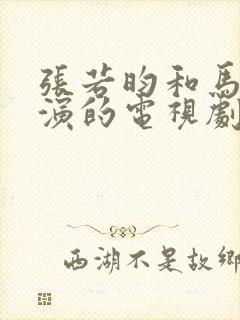 張若昀和馬
演的電視劇
西湖不是故鄉